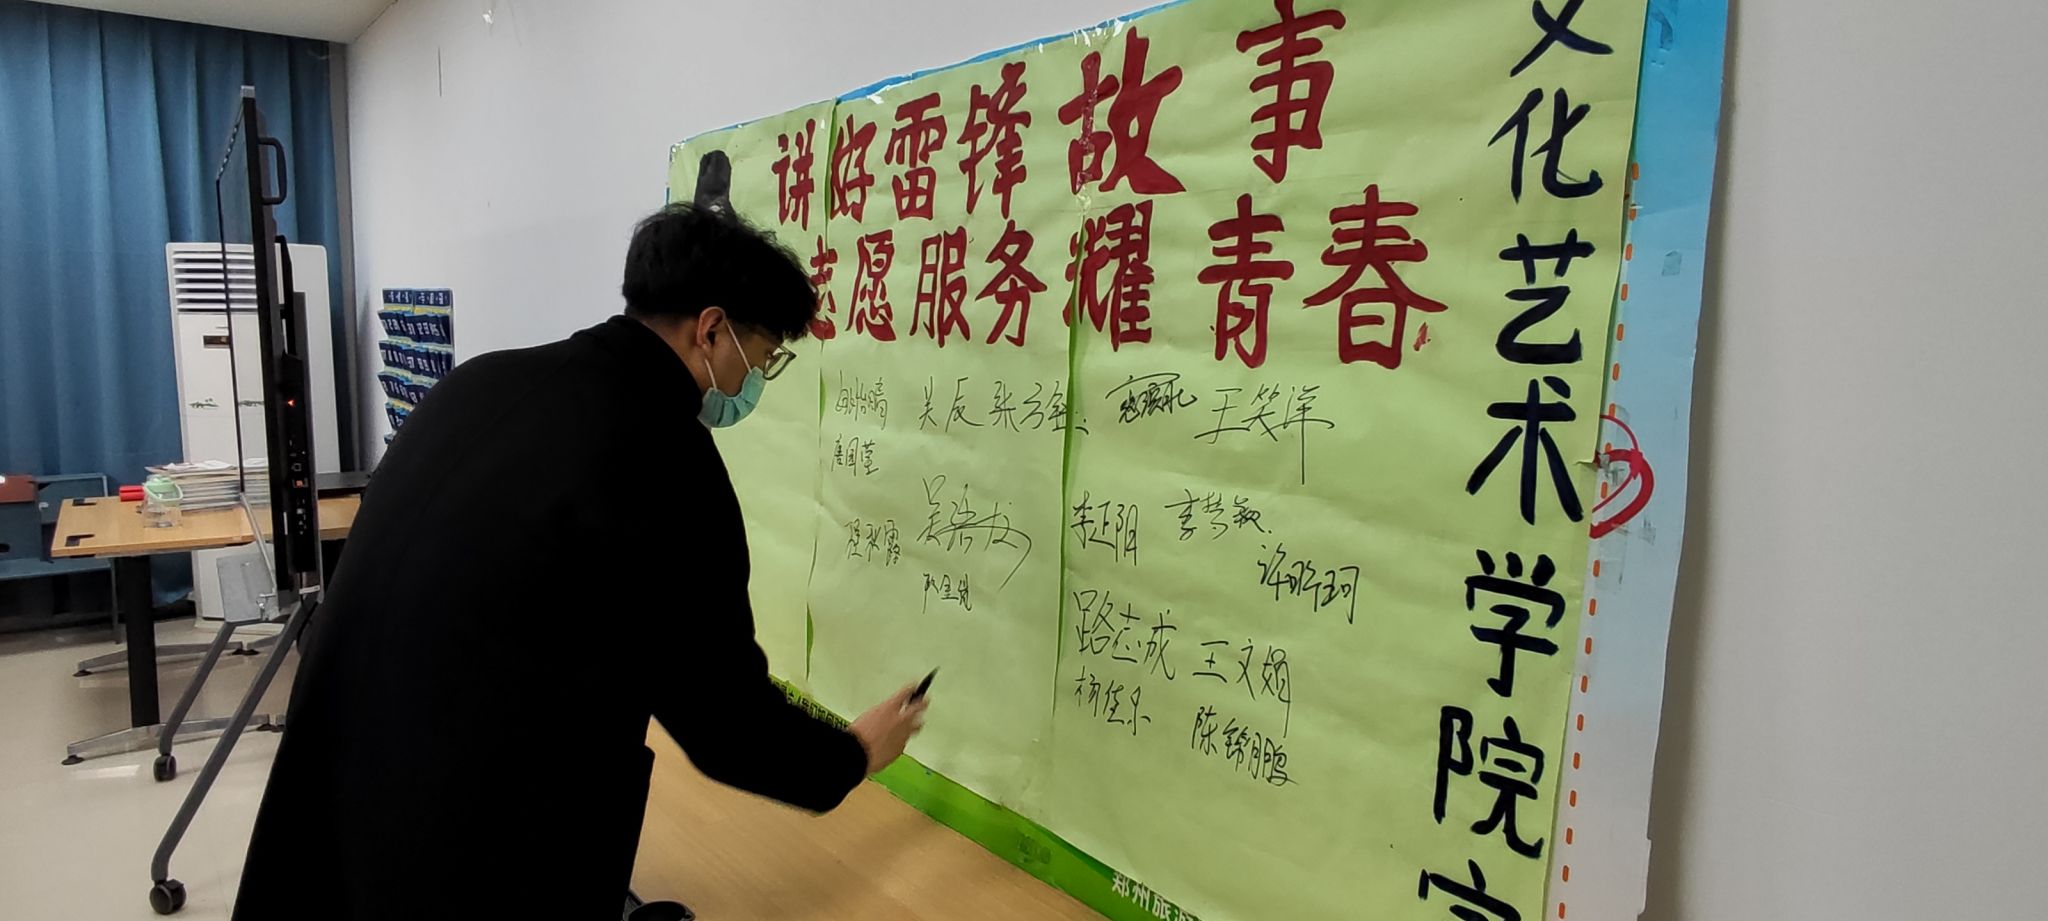 讲好雷锋故事
志愿服务耀青春
吴辰 张 王笑洋
唐国莹
李正阳 李梦颖
程秋露
许昕珂
路志成 王文娟
杨佳乐 陈锦鹏
文化艺术学院
郑州旅游